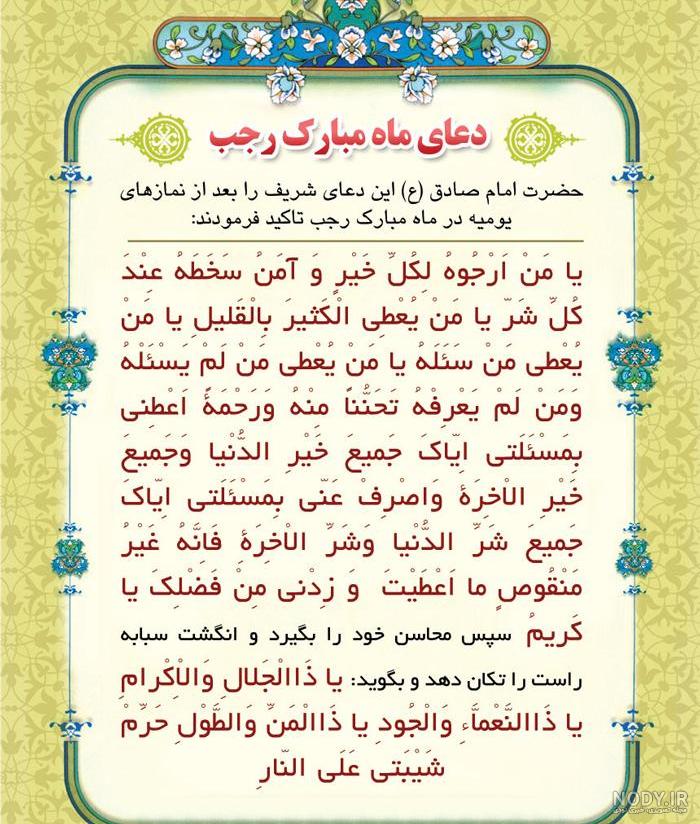 دعای ماه مبارک رجب
حضرت امام صادق (ع) این دعای شریف را بعد از نمازهای
یومیه در ماه مبارک رجب تاکید فرمودند:
یا مَنْ اَرْجُوهُ لِکُلِّ خَیْرٍ وَ آمَنُ سَخَطَهُ عِنْدَ
کُلِّ شَرّ یا مَنْ یُعْطِی الْکَثیرَ بِالْقَلیلِ یا مَنْ
یُعْطی مَنْ سَئَلَهُ یا مَنْ یُعْطی مَنْ لَمْ یسْئَلْهُ
وَمَنْ لَمْ یَعْرِفْهُ تَحَنُّناً مِنْهُ وَرَحْمَةً اَعْطِنی
بِمَسْئَلَتی اِیّاکَ جَمیعَ خَیْرِ الدُّنْیا وَجَمیعَ
خَیْرِ الاْخِرَةِ وَاصْرِفْ عَنّی بِمَسْئَلَتی اِیّاکَ
جَمیعَ شَرِّ الدُّنْیا وَشَرِّ الاْخِرَةِ فَاِنَّهُ غَیْرُ
مَنْقُوصٍ ما اَعْطَیْتَ وَ زِدْنی مِنْ فَضْلِکَ یا
کَریمُ سپس محاسن خود را بگیرد و انگشت سبابه
راست را تکان دهد و بگوید: یا ذَاالْجَلالِ وَالاْکْرامِ
یا ذَاالنَّعْماَّءِ وَالْجُودِ یا ذَاالْمَنِّ وَالطَّوْلِ حَرِّمْ
شَیْبَتی عَلَی النّارِ
NODY.IR